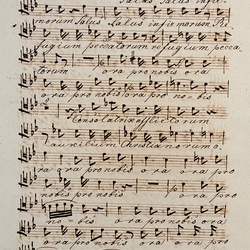 Salus Salus infir-
morum Salus Salus infirmorum Re
fugium peccatorum refugium pecca-
torum ora pro nobis ora
ora pro nobis ora pro no-bis
Consolatrix afflictorum
auxilium Christianorum o-
ra ora pro nobis ora ora pro
nobis pro nobis ora ora pro
no-bis ora pro nobis ora
ora pro nobis ora pro nobis